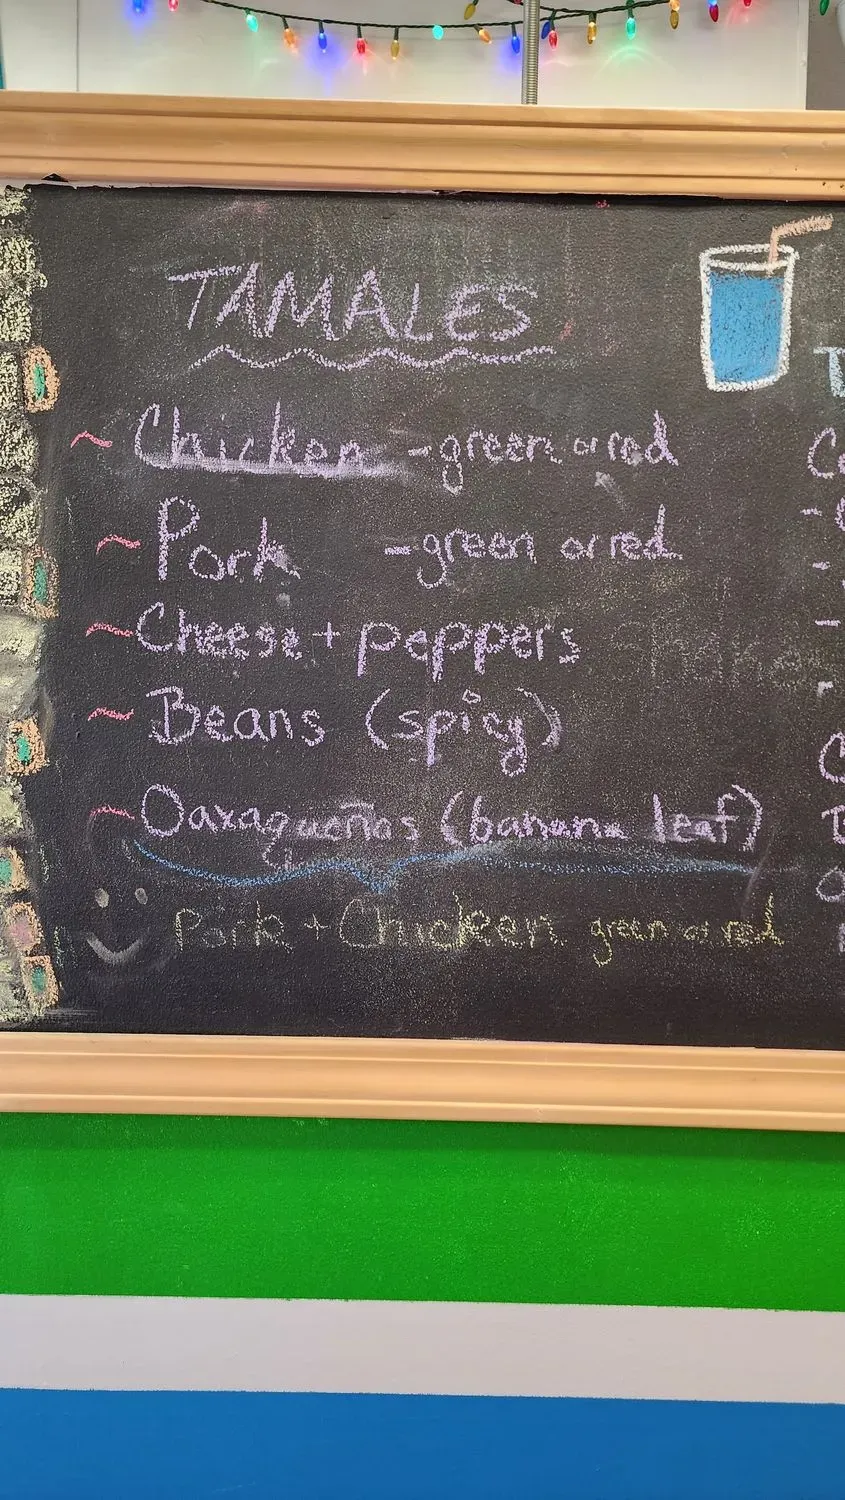 TAMALES
~ Chicken - green or red
~ Pork - green or red
~ Cheese + peppers
~ Beans (spicy)
~ Oaxaqueños (banana leaf)
Pork + Chicken green or red